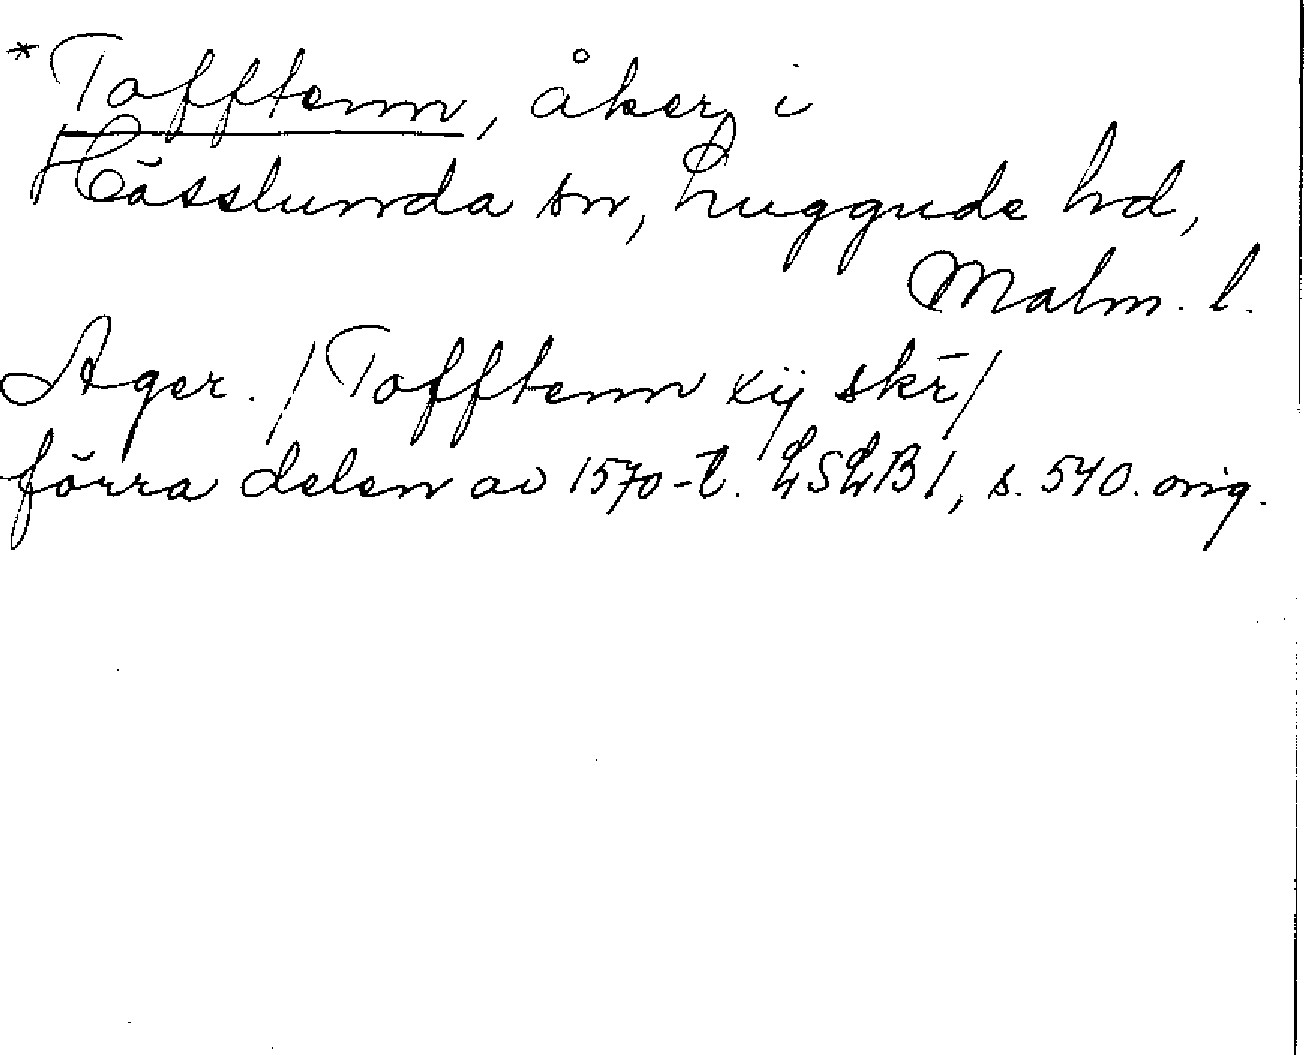 *Tofftenn, åker i
Hässlunda sn, Luggude hd,
Malm. l.
Ager. / Tofftenn xij skr̄ /
förra delen av 1570-t. LSLB I, s. 540. orig.